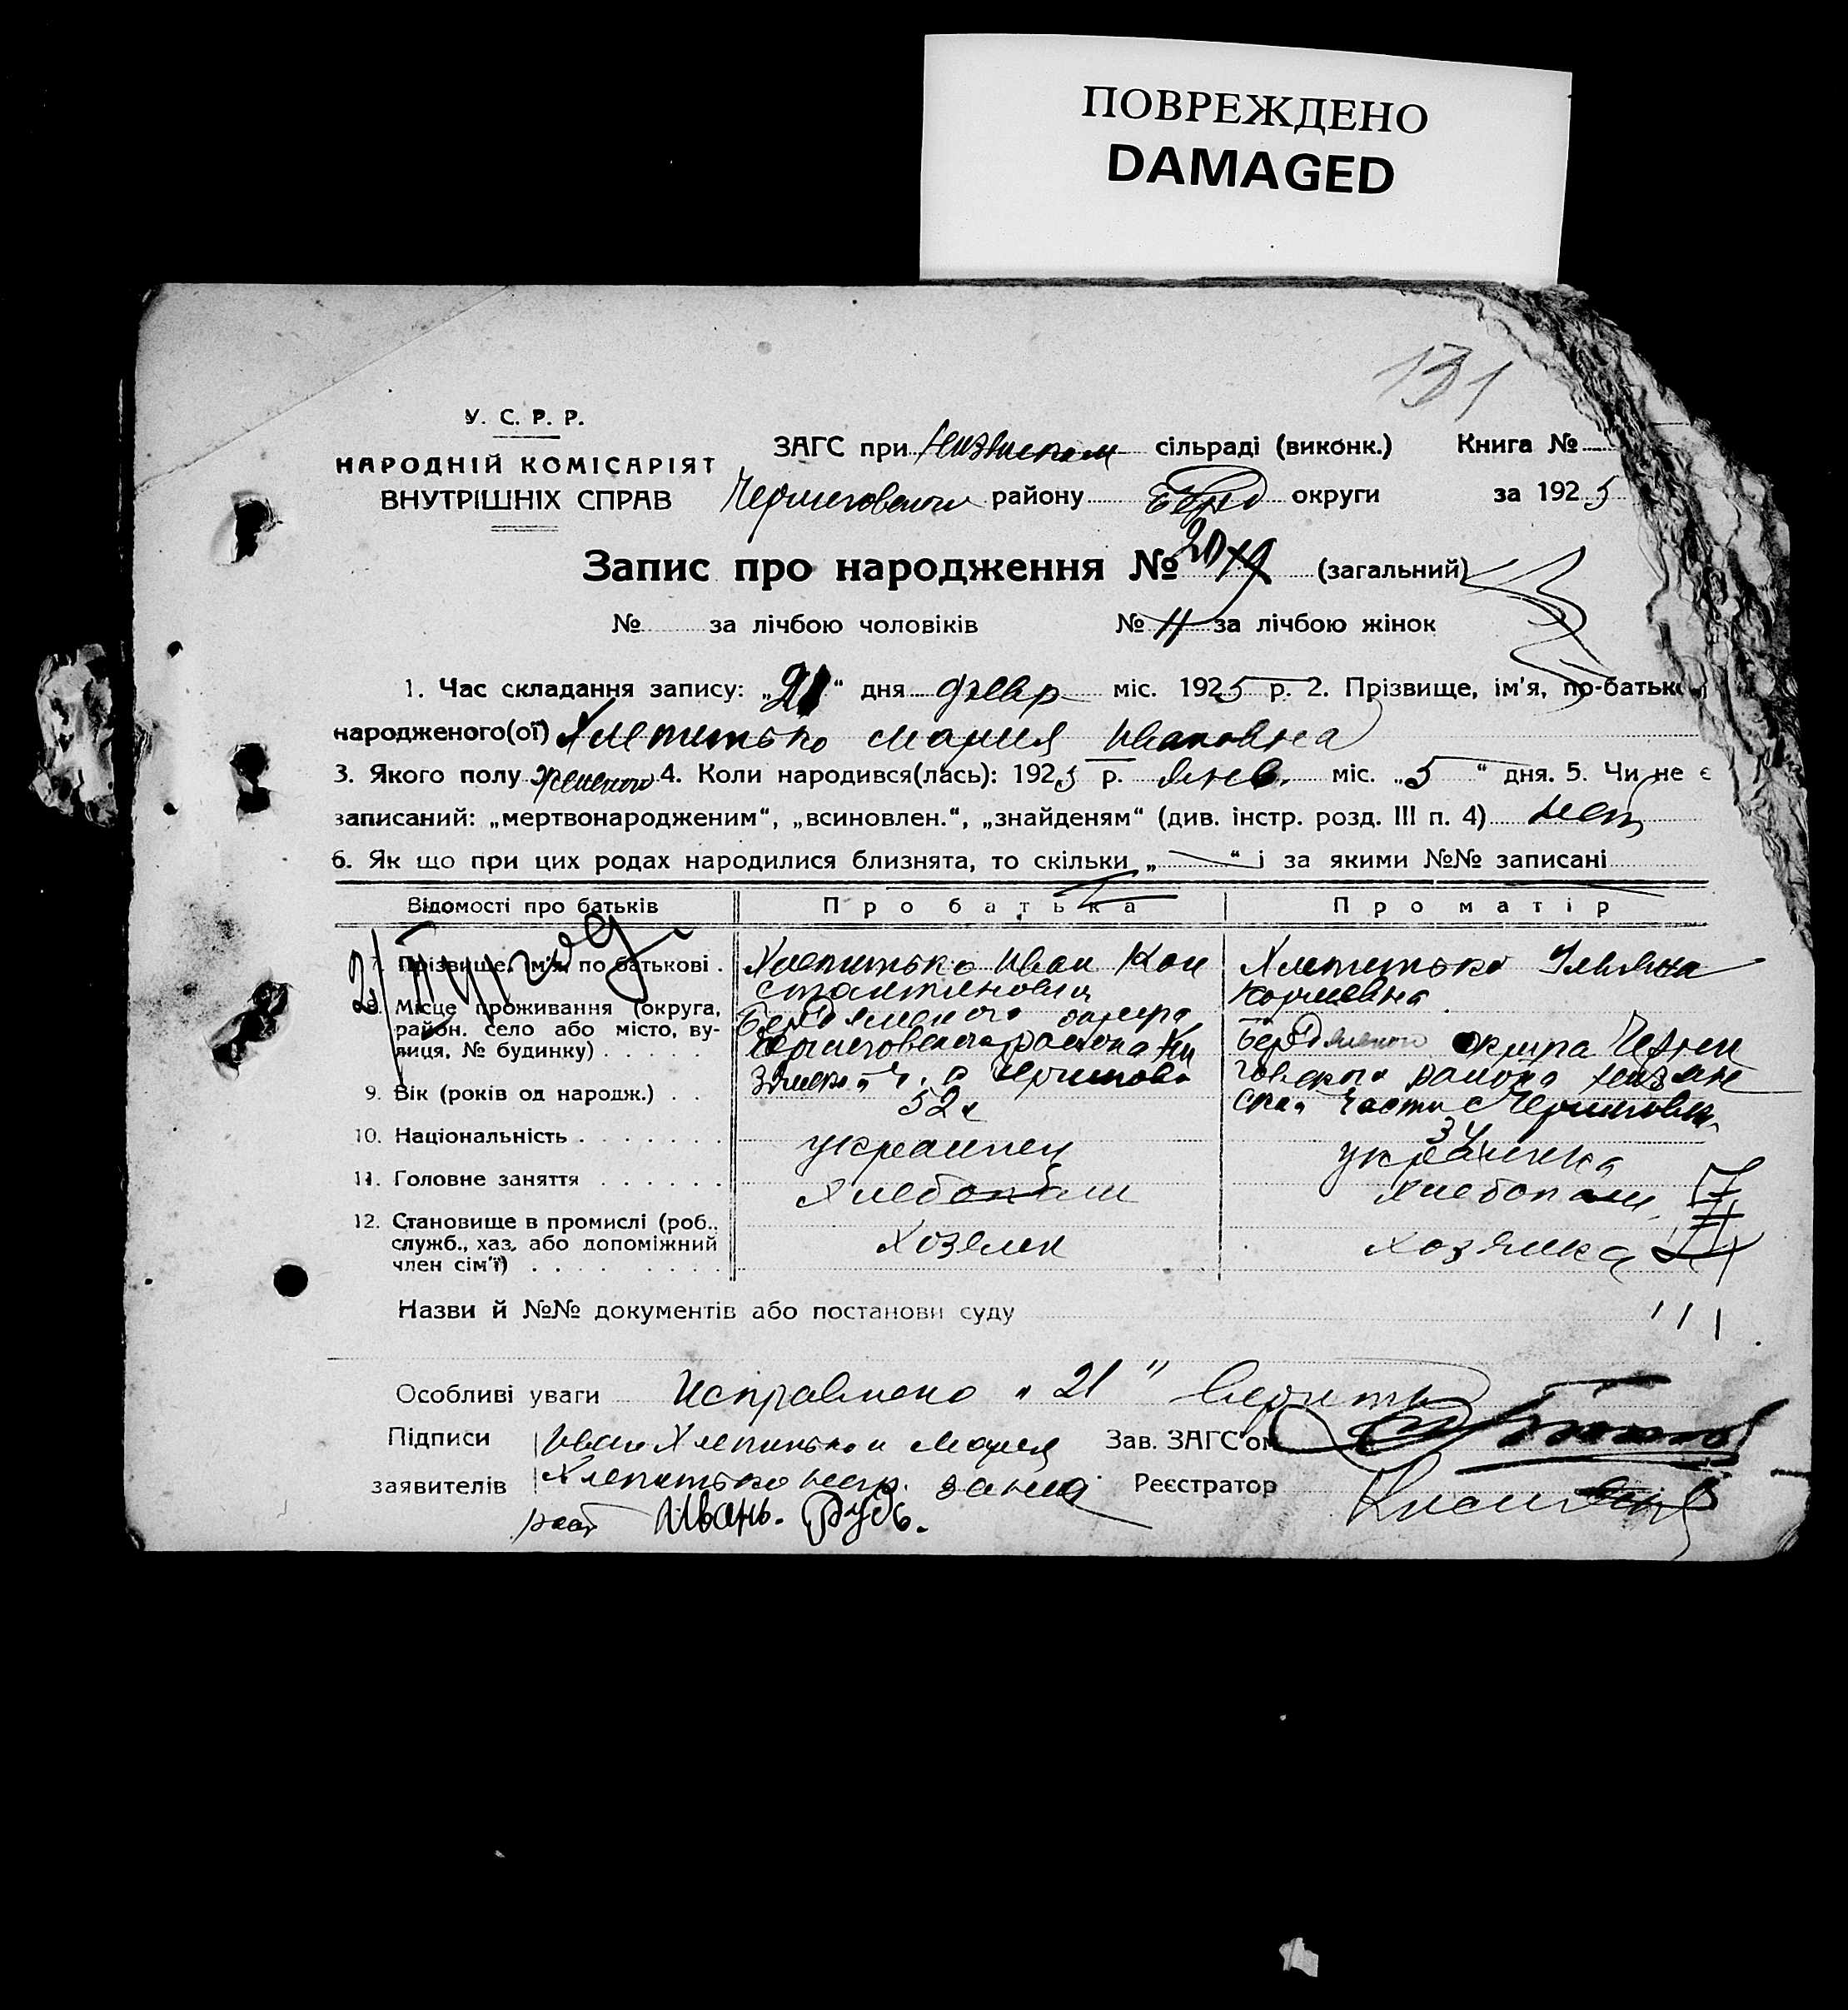 ПОВРЕЖДЕНО
DAMAGED
131
У. С. Р. Р.
НАРОДНІЙ КОМІСАРІЯТ
ВНУТРІШНІХ СПРАВ
ЗАГС при сільраді (виконк.) Книга №
Черниговского району Берд округи за 1925
Запис про народження № 20 (загальний)
№ за лічбою чоловіків № 11 за лічбою жінок
1. Час складання запису: „21“ дня февр міс. 1925 р. 2. Прізвище, ім'я, по-батьк
народженого(ої) Хлепитько Мария Ивановна
3. Якого полу женского 4. Коли народився(лась): 1925 р. янв. міс. „5“ дня. 5. Чи не є
записаний: „мертвонародженим“, „всиновлен.“, „знайденям“ (див. інстр. розд. III п. 4) нет
6. Як що при цих родах народилися близнята, то скільки „ “ і за якими №№ записані
Відомості про батьків Про батька Про матір
7. Прізвище, ім'я, по батькові . Хлепитько Иван Кон
стантинович
Хлепитько Ульяна
8. Місце проживання (округа,
район. село або місто, ву-
лиця, № будинку) . . . . .
Бердянского округа
Черниговского района Ни
Бердянского округа Черни
говского района Низян
ская части с Черниговки
9. Вік (років од народж.) . . 52 34
10. Національність . . . . . . . украинец украинка
11. Головне заняття . . . . . . хлебопаш хлебопаш
12. Становище в промислі (роб.,
служб., хаз, або допоміжний
член сім'ї) . . . . . . . . .
хозяин хозяйка
Назви й №№ документів або постанови суду
Особливі уваги Исправлено „21" верить
Підписи Иван Хлепитько и Мария Зав. ЗАГС'ом
заявителів Хлепитько негр. за них Реєстратор
расп Иванъ. Рудь.